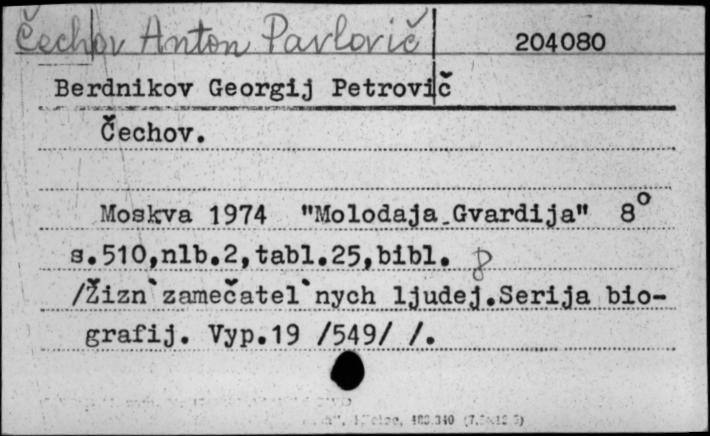 Čechov Anton Pavlovič 204080
Berdnikov Georgij Petrovič
Čechov.
Moskva 1974 "Molodaja Gvardija" 8°
s.510,nlb.2,tabl.25,bibl. 8
/Žizn`zamečatel`nych ljudej.Serija bio-
grafij. Vyp.19 /549/ /.